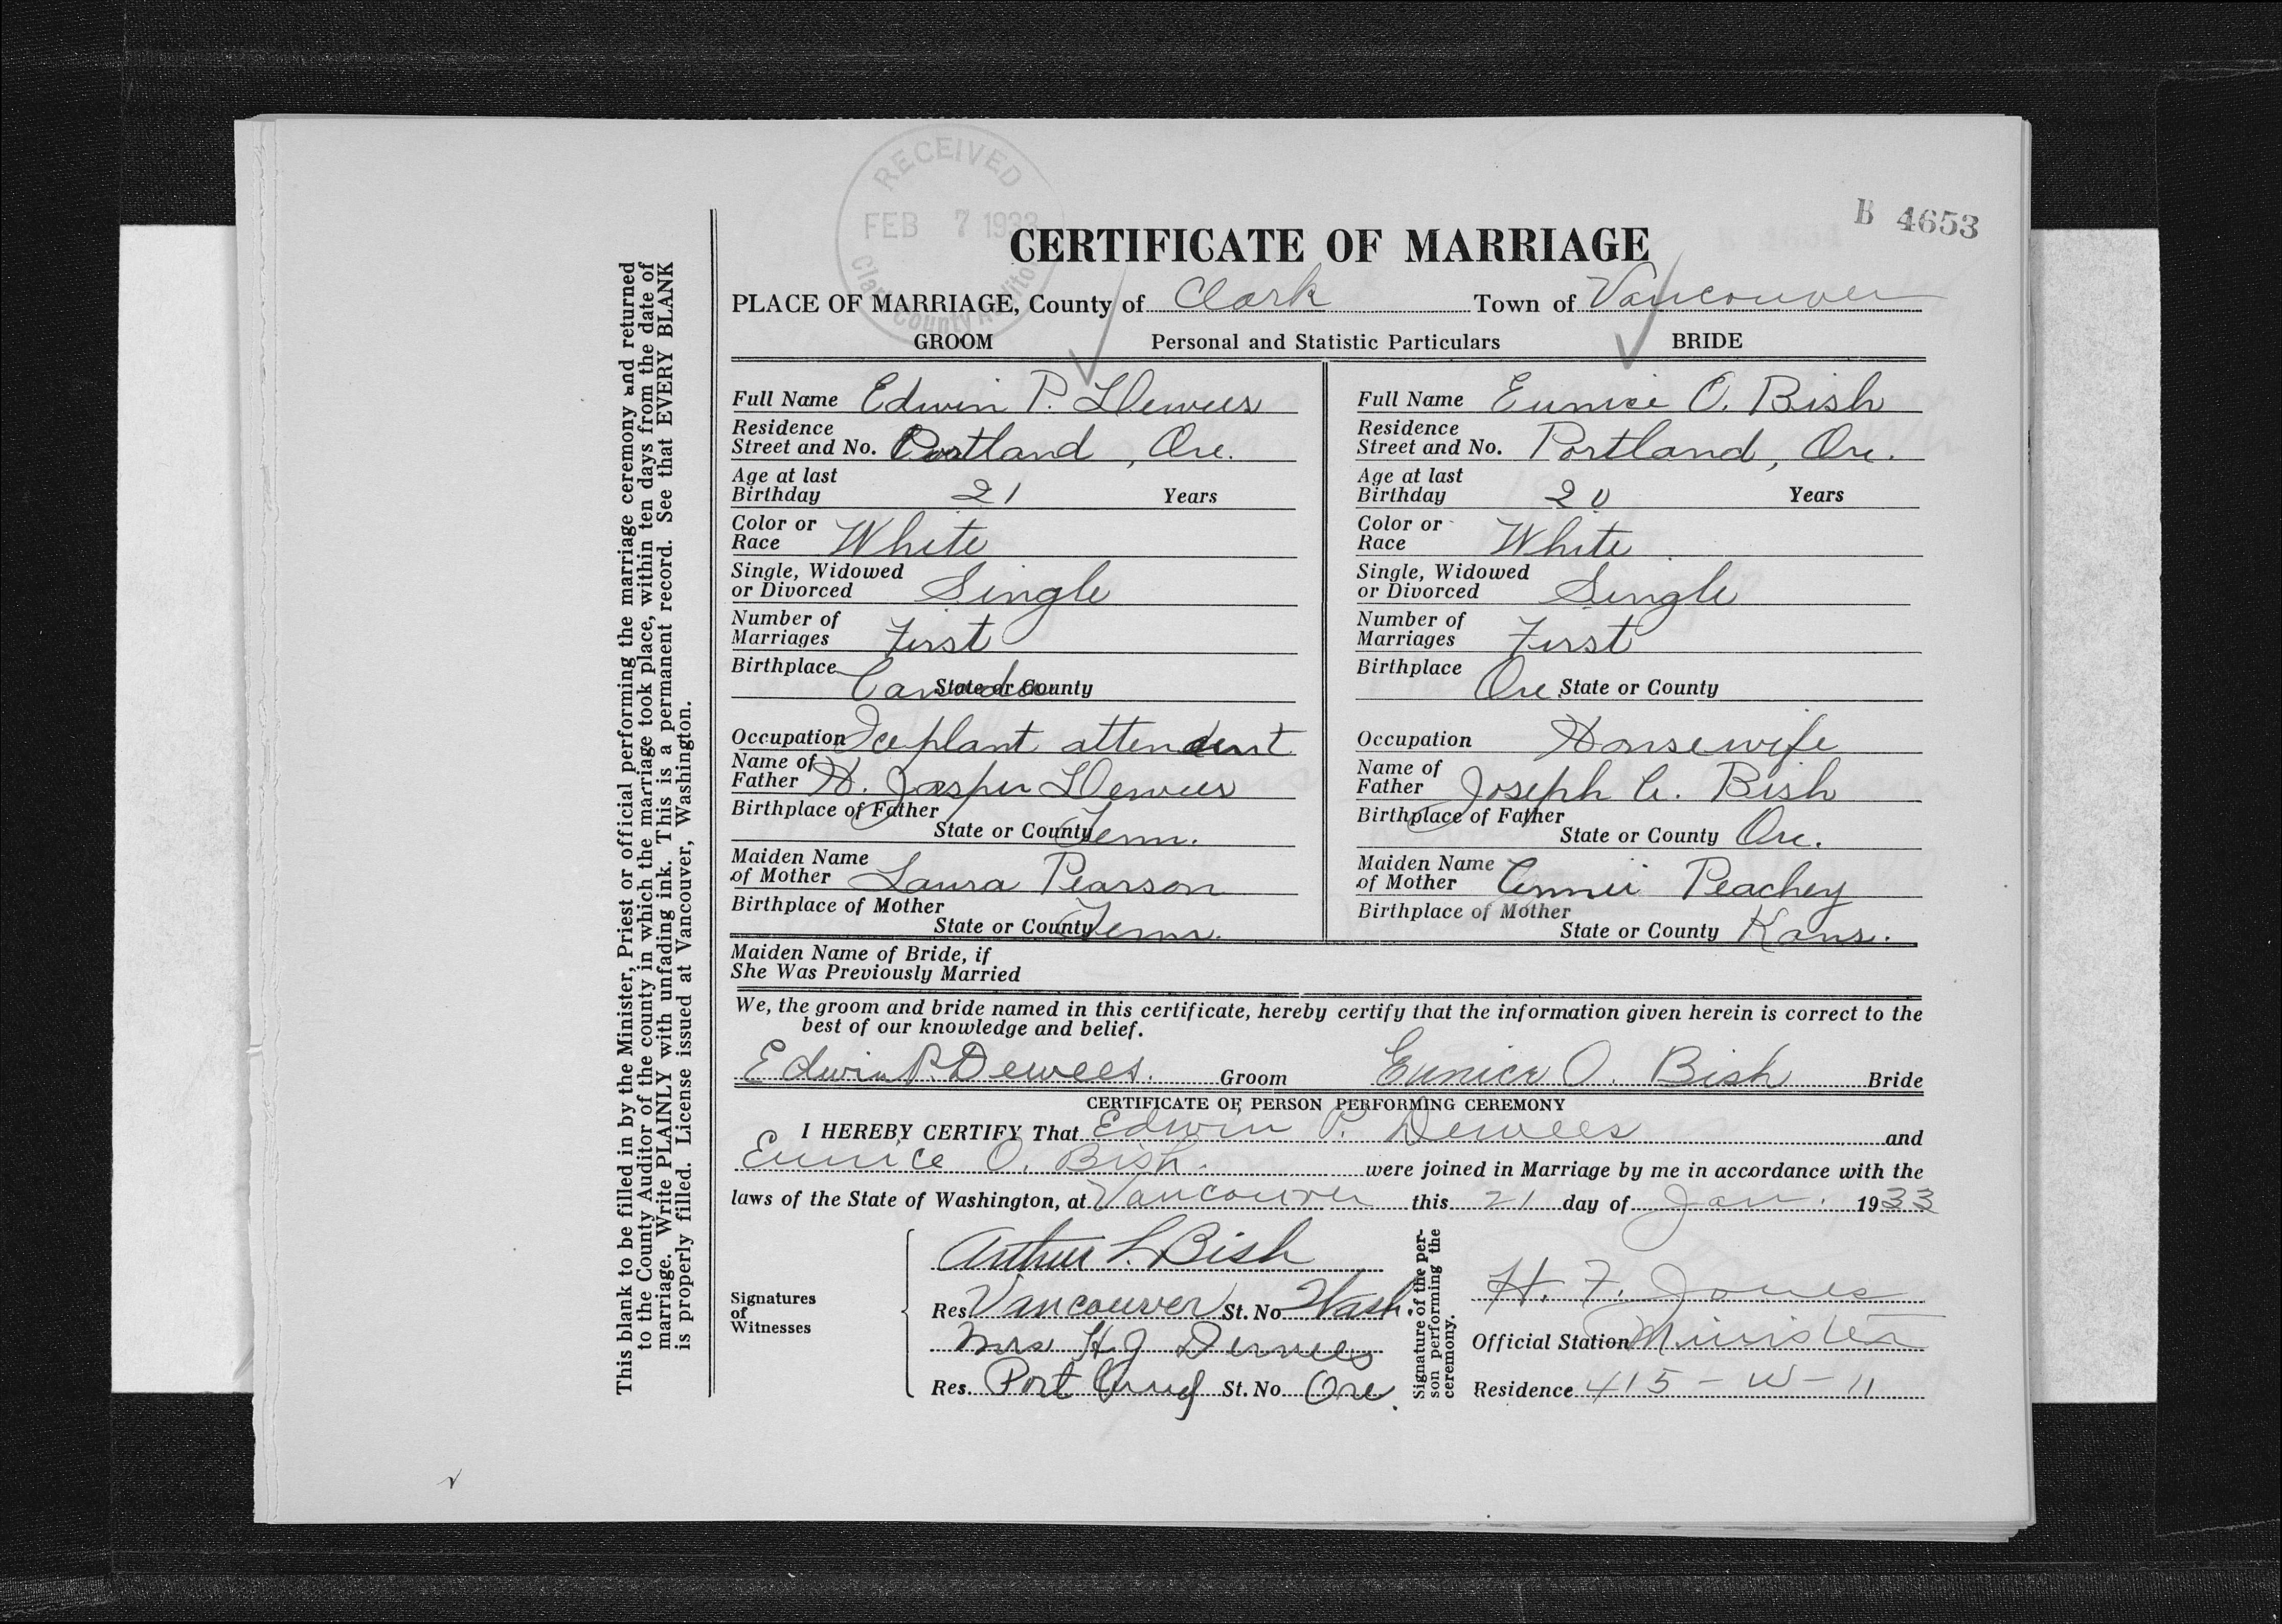 RECEIVED
FEB 7 1933
Clark County Auditor
B 4653
CERTIFICATE OF MARRIAGE
PLACE OF MARRIAGE, County of Clark Town of Vancouver
GROOM Personal and Statistic Particulars BRIDE
Full Name Edwin P. Dewees
Residence
Street and No. Portland, Ore.
Age at last
Birthday 21 Years
Color or
Race White
Single, Widowed
or Divorced Single
Number of
Marriages First
Birthplace Canada
State or County
Occupation Iceplant attendent
Name of
Father H. Jasper Dewees
Birthplace of Father
State or County Tenn.
Maiden Name
of Mother Laura Pearson
Birthplace of Mother
State or County Tenn.
Full Name Eunice O. Bish
Residence
Street and No. Portland, Ore.
Age at last
Birthday 20 Years
Color or
Race White
Single, Widowed
or Divorced Single
Number of
Marriages First
Birthplace
Ore. State or County
Occupation Housewife
Name of
Father Joseph A. Bish
Birthplace of Father
State or County Ore.
Maiden Name
of Mother Annie Peachey
Birthplace of Mother
State or County Kans.
Maiden Name of Bride, if
She Was Previously Married
We, the groom and bride named in this certificate, hereby certify that the information given herein is correct to the
best of our knowledge and belief.
Edwin P. Dewees. Groom Eunice O. Bish Bride
CERTIFICATE OF PERSON PERFORMING CEREMONY
I HEREBY CERTIFY That Edwin P. Dewees and
Eunice O. Bish. were joined in Marriage by me in accordance with the
laws of the State of Washington, at Vancouver this 21 day of Jan. 1933
Signatures
of
Witnesses
Arthur L. Bish
Res. Vancouver St. No. Wash.
Mrs H J Dewees
Res. Port St. No. Ore.
Signature of the per-
son performing the
ceremony.
H. F. Jones
Official Station Minister
Residence 415 - W - 11
This blank to be filled in by the Minister, Priest or official performing the marriage ceremony and returned
to the County Auditor of the county in which the marriage took place, within ten days from the date of
marriage. Write PLAINLY with unfading ink. This is a permanent record. See that EVERY BLANK
is properly filled. License issued at Vancouver, Washington.